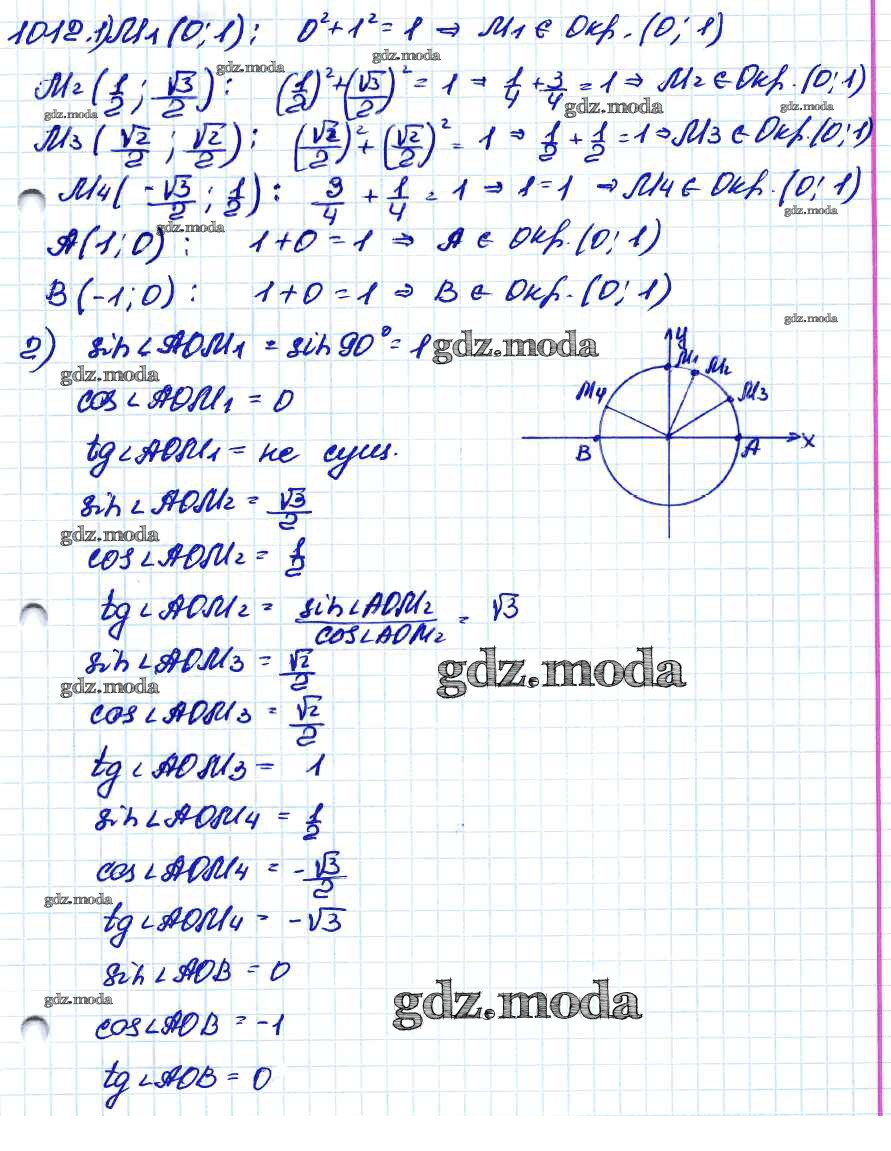 1012.1) M₁(0;1): 0²+1²=1 ⇒ M₁ ∈ Окр.(0;1)
gdz.moda
gdz.moda
M₂(1/2; √3/2): (1/2)²+(√3/2)²=1 ⇒ 1/4+3/4=1 ⇒ M₂ ∈ Окр.(0;1)
gdz.moda
gdz.moda
gdz.moda
M₃(√2/2; √2/2): (√2/2)²+(√2/2)²=1 ⇒ 1/2+1/2=1 ⇒ M₃ ∈ Окр.(0;1)
M₄(-√3/2; 1/2): 3/4+1/4=1 ⇒ 1=1 ⇒ M₄ ∈ Окр.(0;1)
gdz.moda
gdz.moda
A(1;0): 1+0=1 ⇒ A ∈ Окр.(0;1)
B(-1;0): 1+0=1 ⇒ B ∈ Окр.(0;1)
gdz.moda
2) sin∠AOM₁ = sin90°=1
gdz.moda
gdz.moda
y
M₁
M₂
M₄
M₃
B
A
x
cos∠AOM₁ = 0
tg∠AOM₁ = не сущ.
sin∠AOM₂ = √3/2
gdz.moda
cos∠AOM₂ = 1/2
tg∠AOM₂ = sin∠AOM₂/cos∠AOM₂ = √3
sin∠AOM₃ = √2/2
gdz.moda
gdz.moda
cos∠AOM₃ = √2/2
tg∠AOM₃ = 1
sin∠AOM₄ = 1/2
cos∠AOM₄ = -√3/2
gdz.moda
tg∠AOM₄ = -√3
sin∠AOB = 0
gdz.moda
gdz.moda
cos∠AOB = -1
tg∠AOB = 0